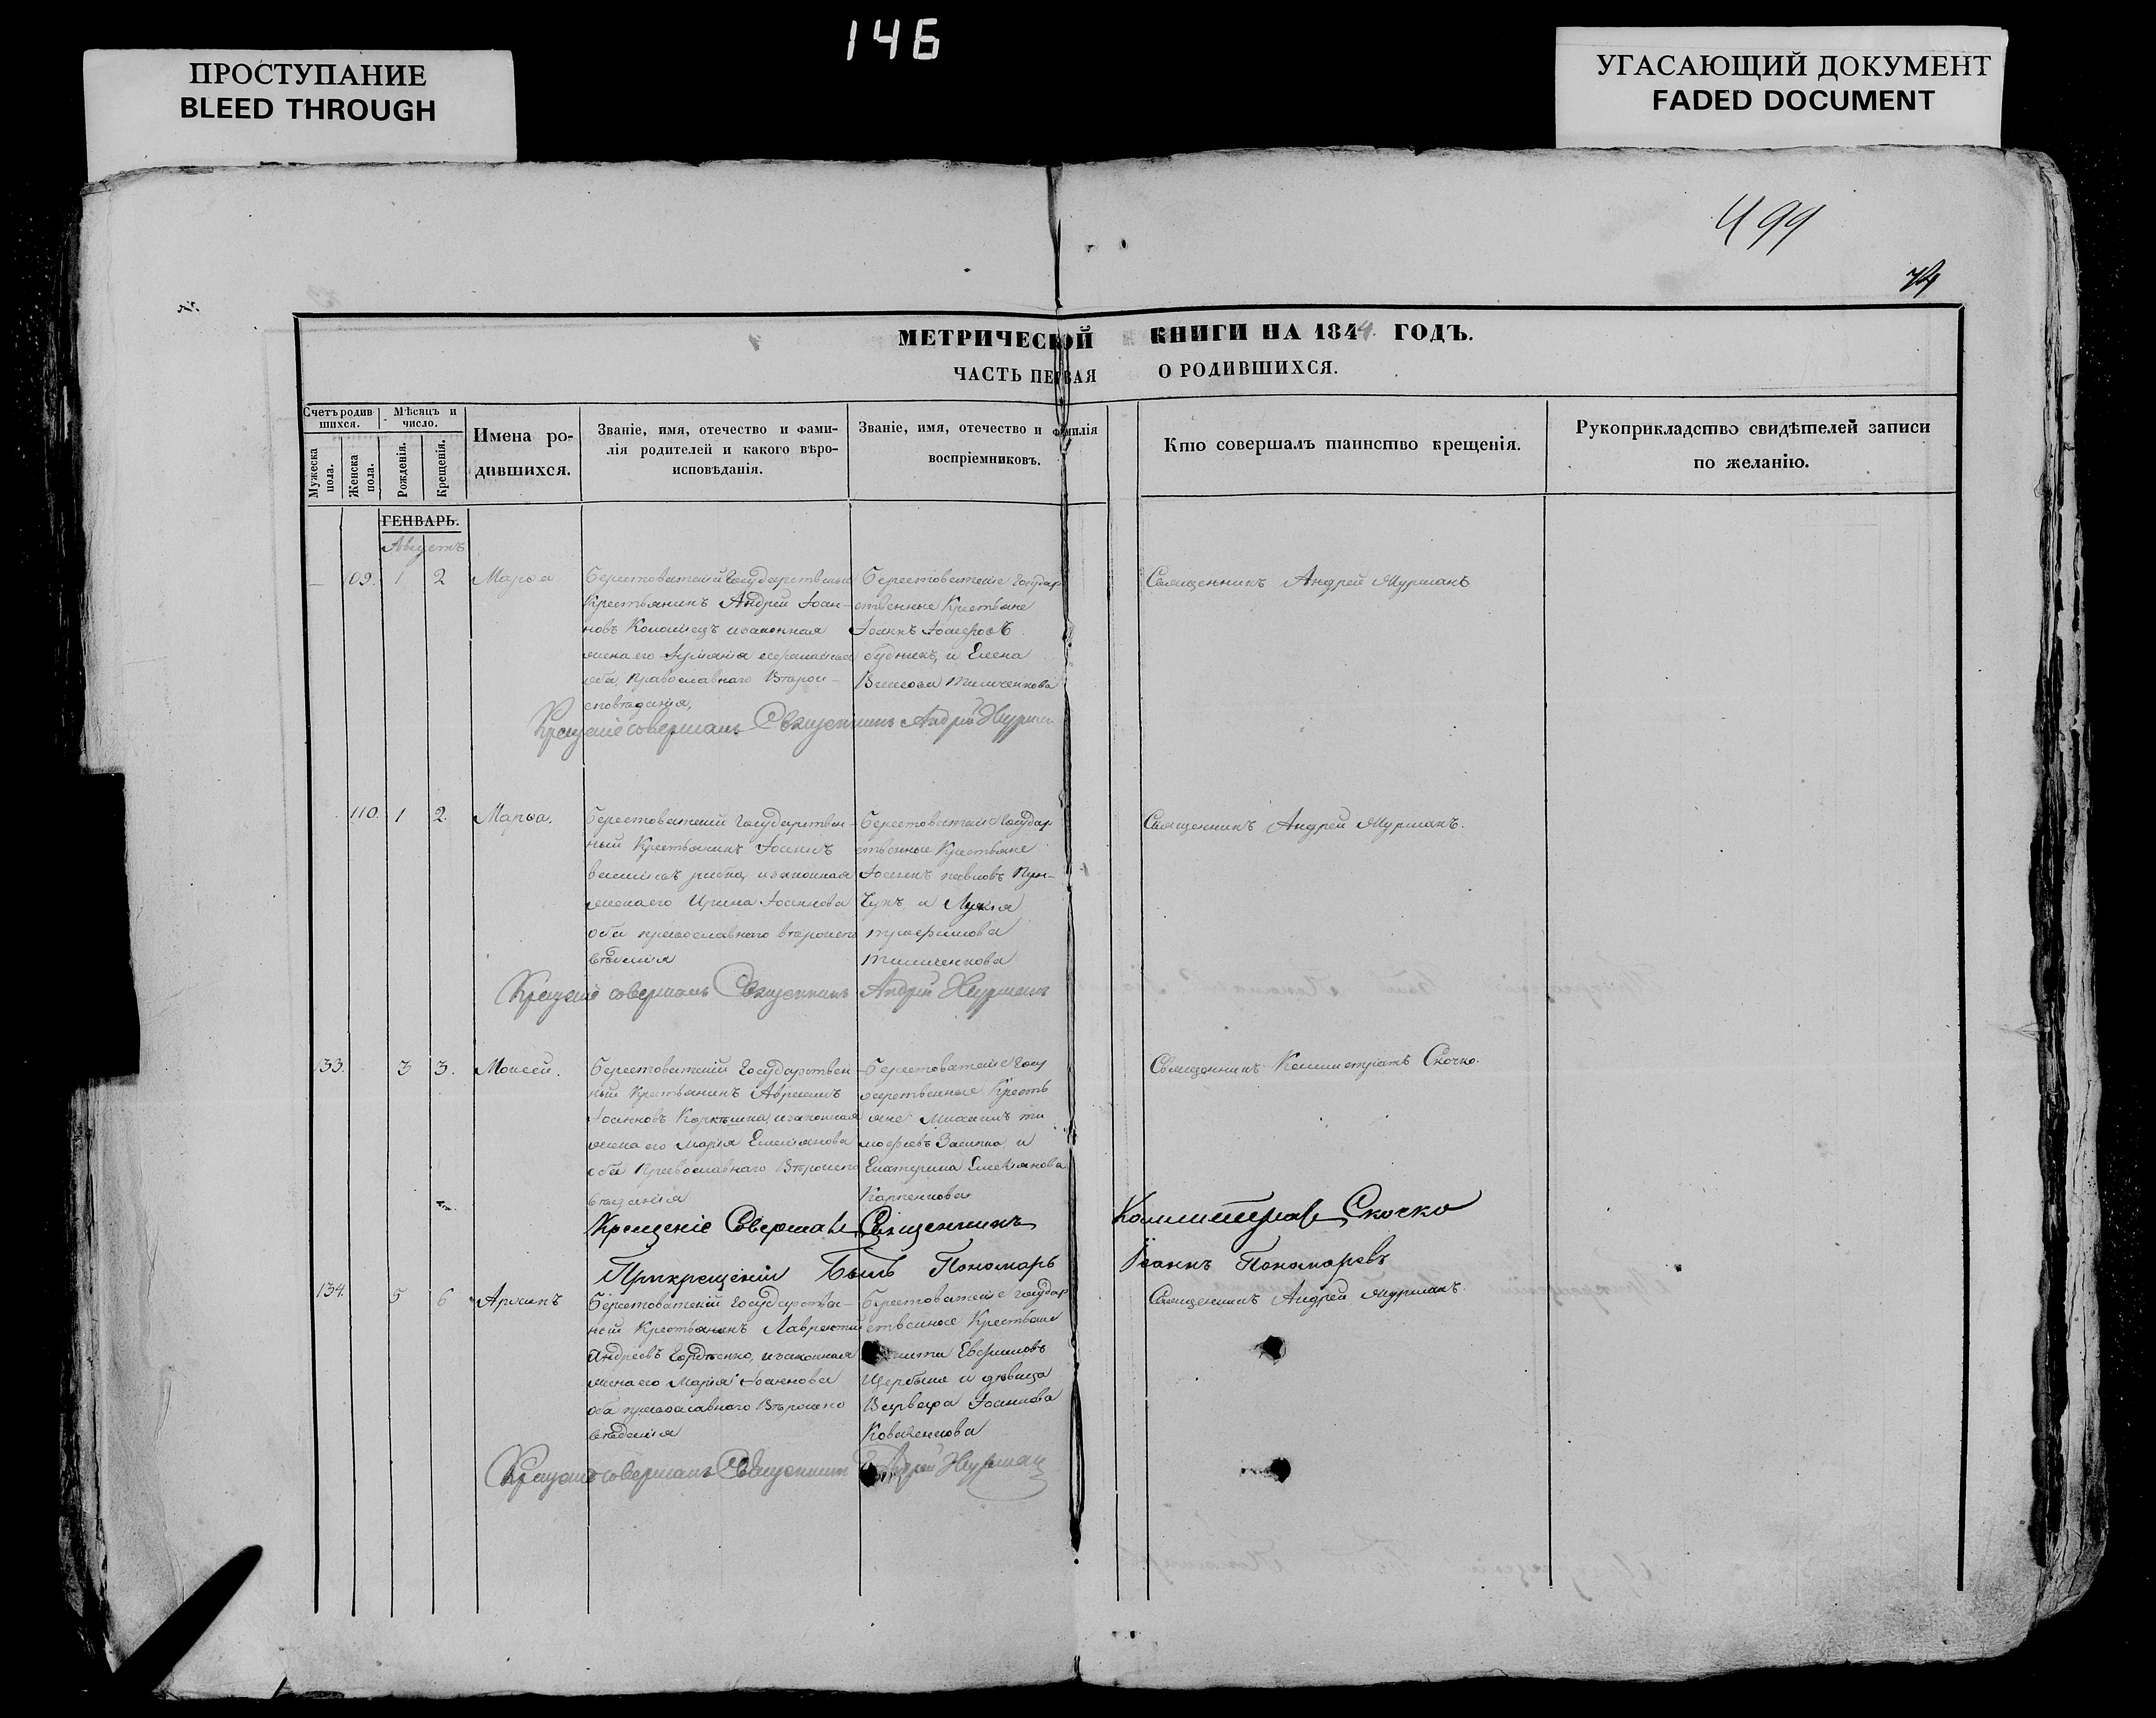 146
ПРОСТУПАНИЕ
BLEED THROUGH
УГАСАЮЩИЙ ДОКУМЕНТ
FADED DOCUMENT
499
74
МЕТРИЧЕСКОЙ КНИГИ НА 1844. ГОДЪ.
ЧАСТЬ ПЕРВАЯ О РОДИВШИХСЯ.
Счетъ родив
шихся.
Мужеска
пола.
Женска
пола.
Мѣсяцъ и
число.
Рожденія.
Крещенія.
Имена ро-
дившихся.
Званіе, имя, отечество и фами-
лія родителей и какого вѣро-
исповѣданія.
Званіе, имя, отечество и фамилія
воспріемниковъ.
Кто совершалъ таинство крещенія.
Рукоприкладство свидѣтелей записи
по желанію.
ГЕНВАРЬ.
Августъ
109. 1 2 Марѳа
Крестьянинъ Андрей Іоан-
новъ Коломіецъ изаконная
жена его
оба Православнаго Вѣрои-
сповѣданія,
Берестоватскіе государ
ственные Крестьяне
Іоаннъ
и Елена
Священникъ Андрей Мурманъ
Крещеніе совершалъ Священникъ Андрей Мурман
110. 1 2. Марѳа.
Берестоватскій Государствен-
ный Крестьянинъ Іоаннъ
изаконная
жена его Ирина Іоаннова
оба православнаго вѣроиспо
вѣданія
Берестоватскіе Государ
ственные Крестьяне
Іоаннъ Павловъ Пун-
и Лукія
трофимова
Священникъ Андрей Мурманъ.
Крещеніе совершалъ Священникъ Андрей Мурманъ
133. 3 3. Моисей.
Берестоватскій Государствен
ный Крестьянинъ Авраамъ
Іоанновъ изаконная
жена его Марія Емеліянова
оба Православнаго Вѣроиспо
вѣданія
Берестоватскіе Госу
дарственные Кресть
яне Михаилъ ти
мофѣевъ и
Екатерина Емеліянова
Карпенкова
Священникъ Каллистратъ Скочко.
Крещеніе Совершалъ Священникъ Каллистратъ Скочко
Прикрещеніи Былъ Пономарь Іоаннъ Пономаревъ
134. 5 6
Берестоватскій Государствен-
ный Крестьянинъ Лаврентій
Андреевъ Гордѣенко, изаконная
жена его Марія Іоаннова
оба православнаго Вѣроиспо
вѣданія
Берестоватскіе Государ
ственные Крестьяне
Евфимовъ
и дѣвица
Варвара Іоаннова
Коваленкова
Священникъ Андрей Мурманъ.
Крещеніе совершалъ Священникъ Андрей Мурман